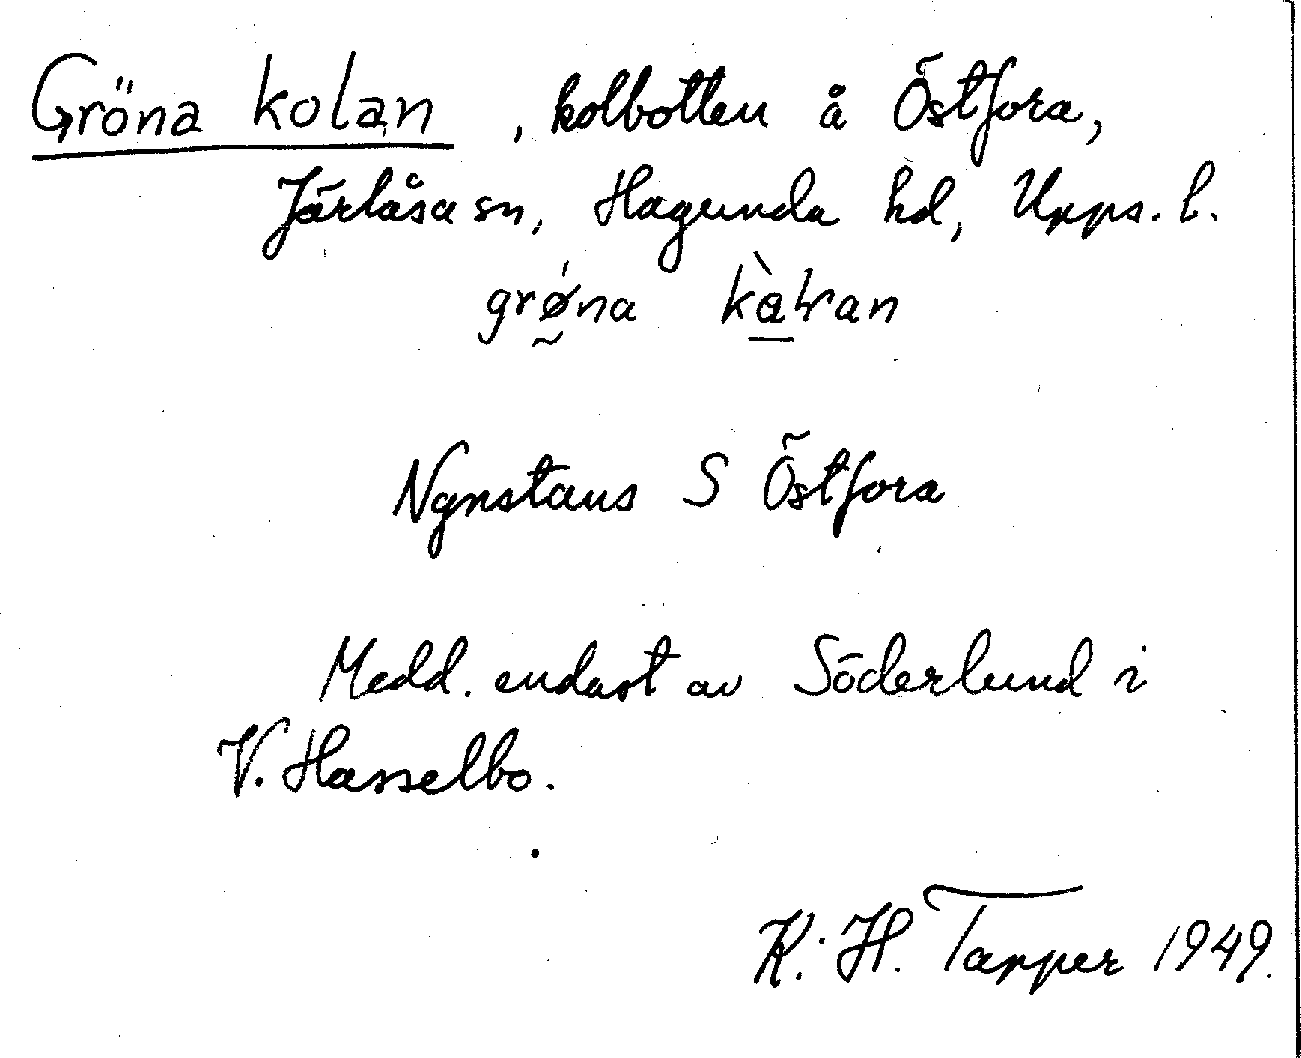 Gröna kolan, kolbotten å Östfora,
Järlåsa sn, Hagunda hd, Upps. l.
Nynstaus S Östfora
Medd. endast av Söderlund i
V. Hasselbo.
K. H. Tapper 1949.